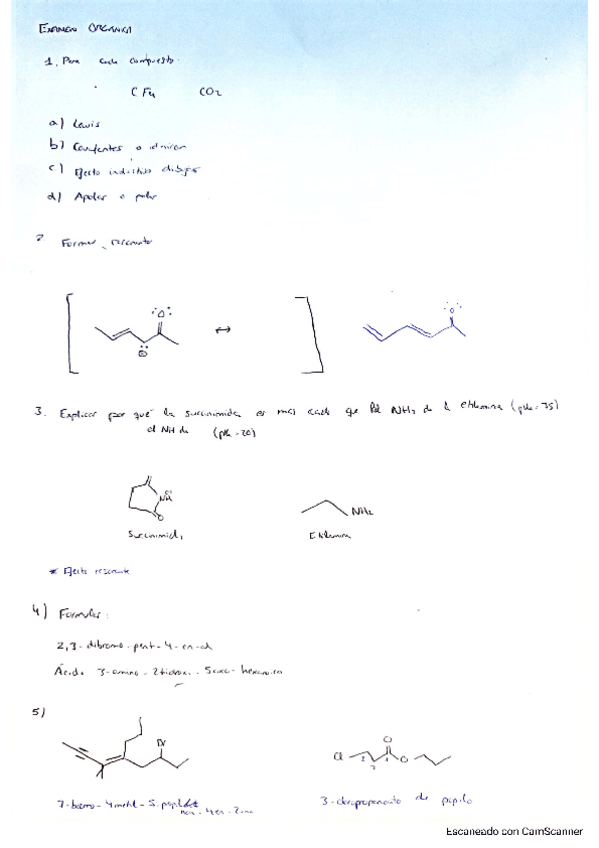 EXAMEN ORGÁNICA
1. Para cada compuesto.
CF4 CO2
a) Lewis
b)
c) Efecto inductivo dibujar
d) Apolar o polar
2. Formas resonante
[ :O: ⊖ ↔ ] :O:
3. Explicar por qué la succinimida es más que NH2 de la etilamina (pKa = 35)
el NH de (pKa = 20)
NH O NH2
Succinimida Etilamina
* Efecto resonante
4) Formular:
2,3-dibromo-pent-4-en-al
Ácido 3-amino-2hidroxi-5-oxo-hexanoico
5)
Br Cl 2 1 O
3 O
7-bromo-4metil-5-propil
non-4en-2-ino
3-cloropropanoato de propilo
Escaneado con CamScanner